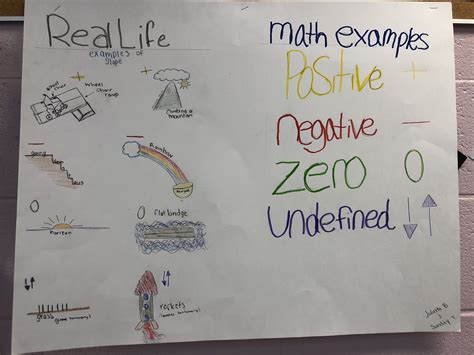 Real Life
examples of
Slope
+
wheel
chair
Wheel
Chair
ramp
+
climbing a
mountain
—
going
down
stairs
—
Rainbow
0
horizon
0
flat bridge
grass
rockets
math examples
Positive +
negative —
Zero 0
Undefined ↑↓
Julieth B